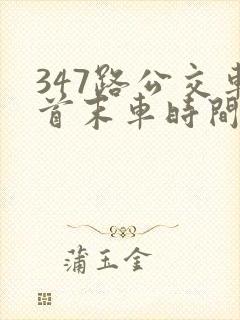 347路公交車
首末車時間
蒲玉金